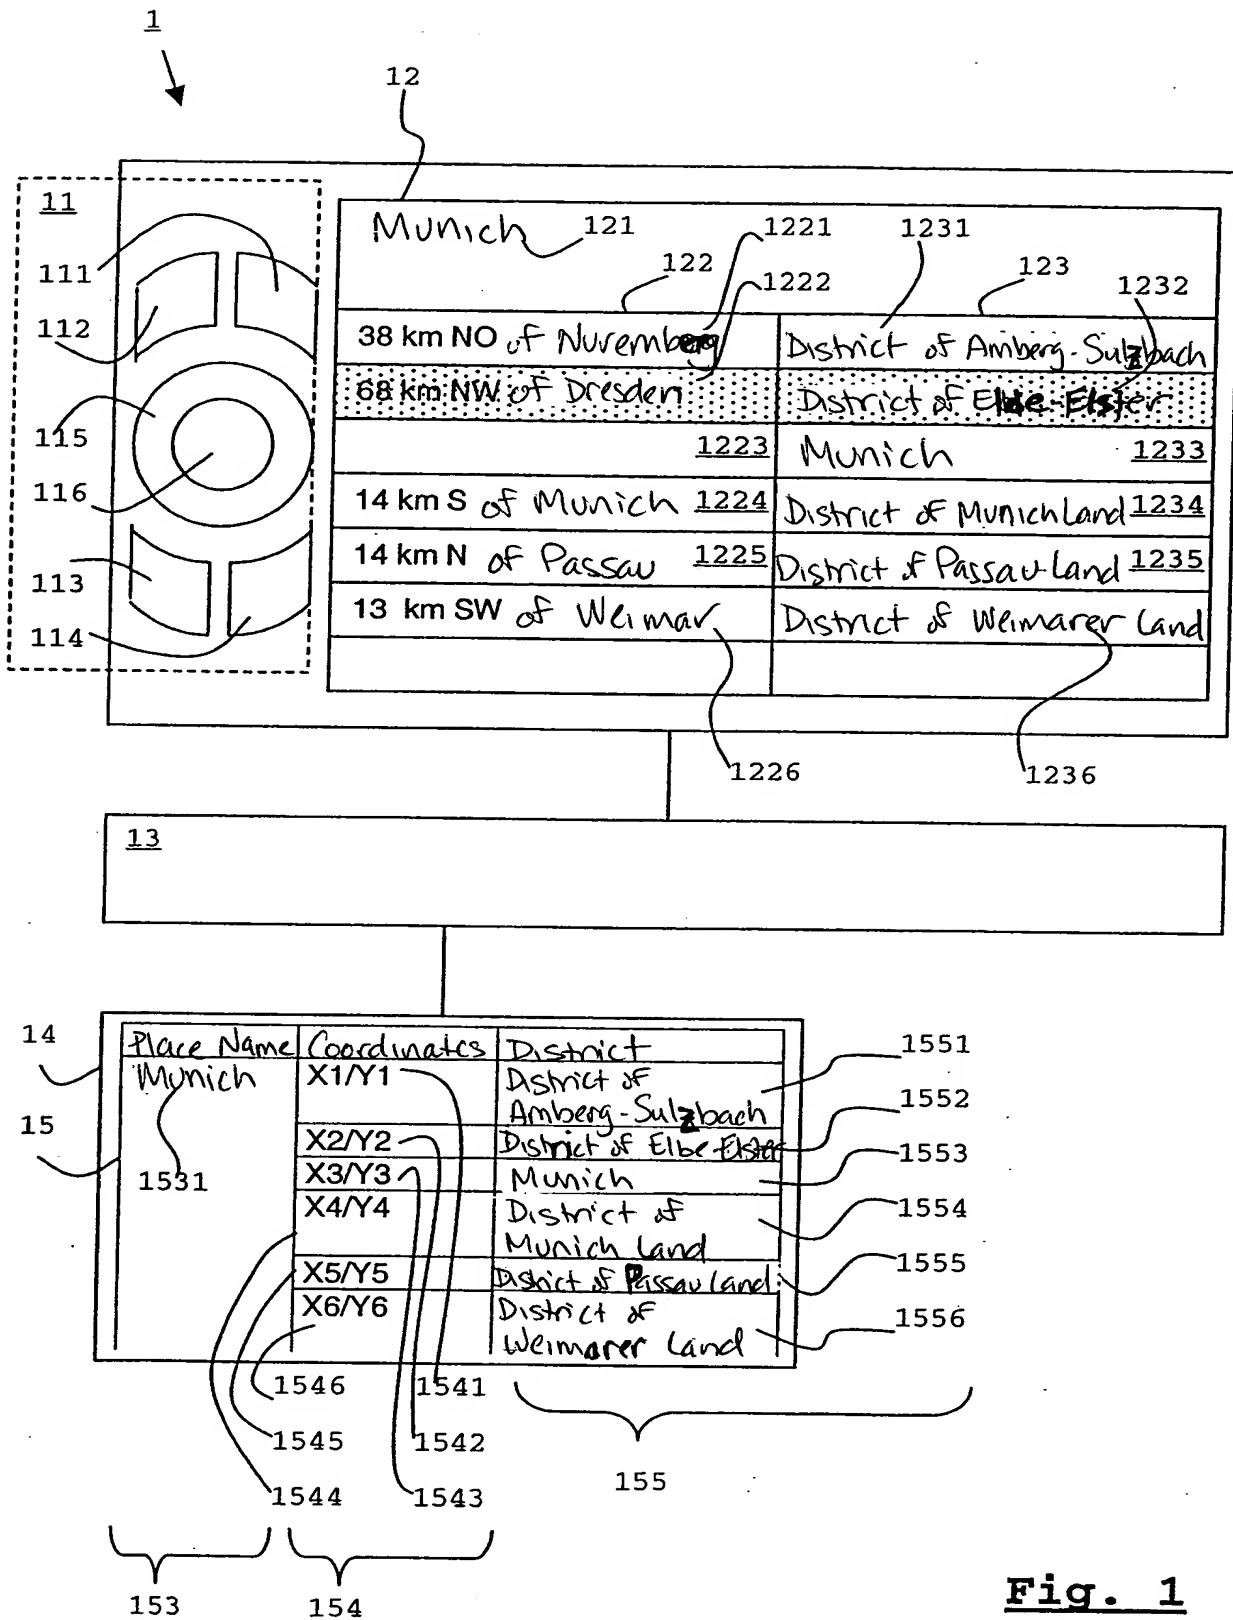 1
12
11
Munich 121 1221 1231
111 122 1222 123 1232
112
38 km NO of Nuremberg District of Amberg-Sulzbach
68 km NW of Dresden District of Elbe-Elster
115
1223 Munich 1233
116
14 km S of Munich 1224 District of Munich Land 1234
14 km N of Passau 1225 District of Passau-Land 1235
113
13 km SW of Weimar District of Weimarer Land
114
1226 1236
13
14
Place Name Coordinates District
1551
Munich X1/Y1 District of
Amberg-Sulzbach
1552
15
X2/Y2 District of Elbe-Elster
1553
1531 X3/Y3 Munich
X4/Y4 District of
1554
Munich Land
1555
X5/Y5 District of Passau Land
X6/Y6 District of
1556
Weimarer Land
1546 1541
1545 1542
1544 1543 155
153 154
Fig. 1